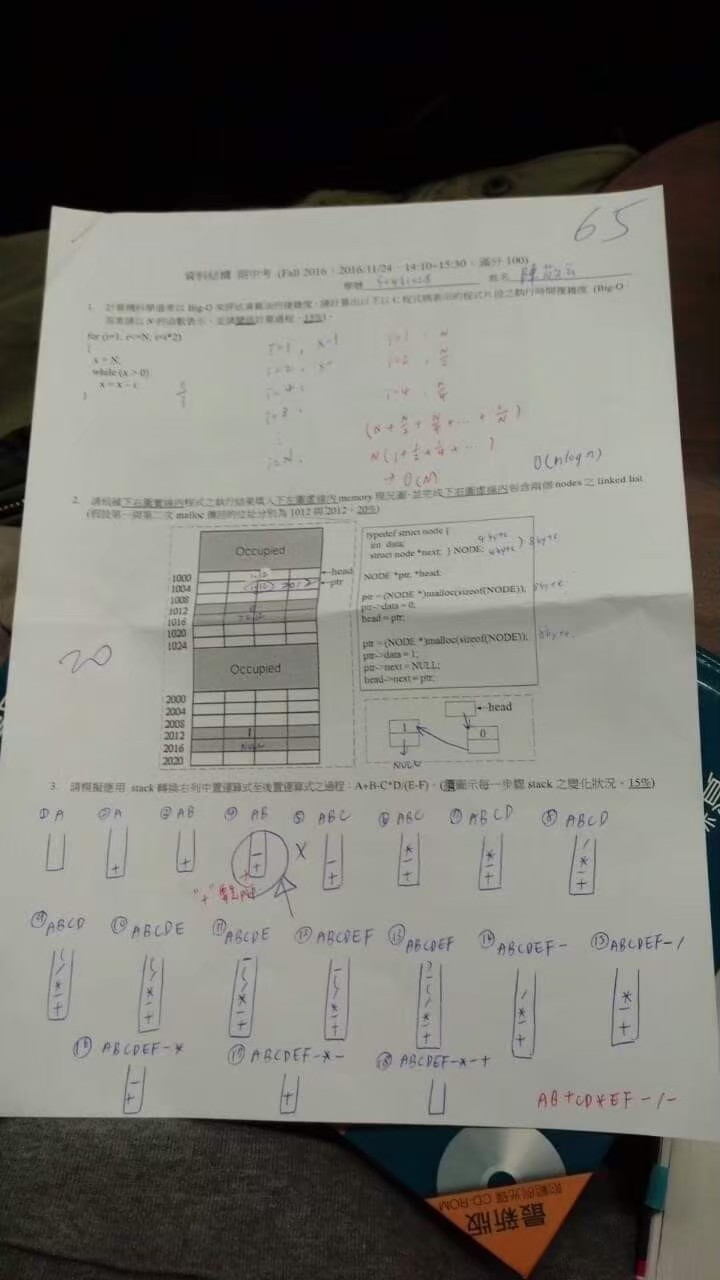 65
資料結構 期中考 (Fall 2016，2016/11/24，14:10~15:30，滿分 100)
學號 姓名
1. 計算機科學通常以 Big-O 來評估演算法的複雜度，請計算出以下以 C 程式碼表示的程式片段之執行時間複雜度 (Big-O
答案請以 N 的函數表示，並請簡述計算過程，15%)。
for (i=1; i<=N; i=i*2)
{
x = N;
while (x > 0)
x = x - i;
}
i=1,
i=2,
i=4
i=8
i=N
i=1, N
i=2, N/2
i=4, N/4
(N + N/2 + N/4 + ... +
N(1+1/2+1/4+...)
→ O(N)
O(n log n)
2. 請根據下右圖實線內程式之執行結果填入下左圖虛線內 memory 現況圖，並完成下右圖虛線內包含兩個 nodes 之 linked list
(假設第一與第二次 malloc 傳回的位址分別為 1012 與 2012，20%)
20
Occupied
1000
1004
1008
1012
1016
1020
1024
1012
2012
←head
←ptr
Occupied
2000
2004
2008
2012
2016
2020
1
NULL
typedef struct node {
int data; 4 byte
struct node *next; } NODE; 4 byte 8 byte
NODE *ptr, *head;
ptr = (NODE *)malloc(sizeof(NODE)); 8 byte
ptr->data = 0;
head = ptr;
ptr = (NODE *)malloc(sizeof(NODE)); 8 byte
ptr->data = 1;
ptr->next = NULL;
head->next = ptr;
←head
1 0
NULL
3. 請模擬應用 stack 轉換右列中置運算式至後置運算式之過程：A+B-C*D/(E-F)。(請圖示每一步驟 stack 之變化狀況，15%)
① A ② A ③ AB ④ AB ⑤ ABC ⑥ ABC ⑦ ABCD ⑧ ABCD
X
⑨ ABCD ⑩ ABCDE ⑪ ABCDE ⑫ ABCDEF ⑬ ABCDEF ⑭ ABCDEF- ⑮ ABCDEF-/
⑯ ABCDEF-/* ⑰ ABCDEF-*- ⑱ ABCDEF-*-+
AB+CD*EF-/-
最新版
CD-ROM